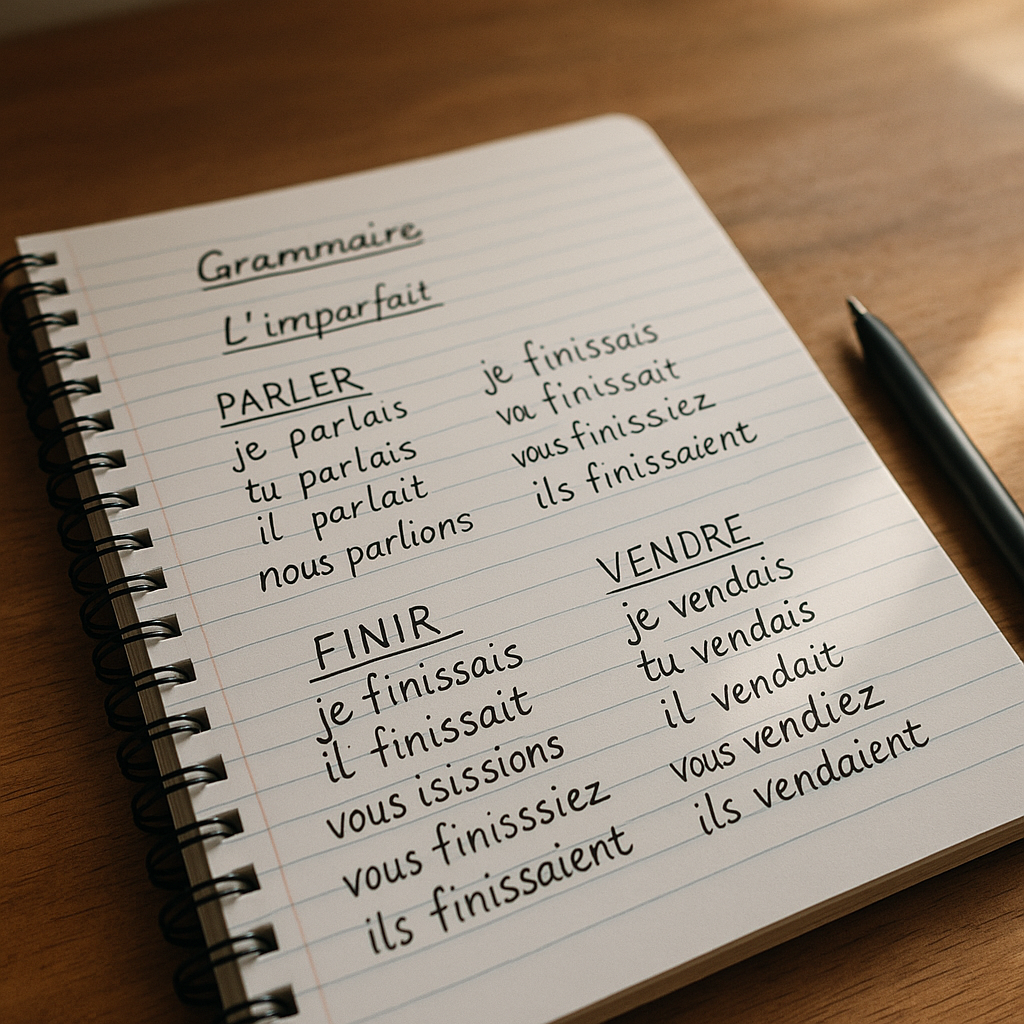 Grammaire
L'imparfait
PARLER
je parlais
tu parlais
il parlait
nous parlions
je finissais
vou finissait
vous finissiez
ils finissaient
FINIR
je finissais
il finissait
vous isissions
vous finisssiez
ils finissaient
VENDRE
je vendais
tu vendais
il vendait
vous vendiez
ils vendaient